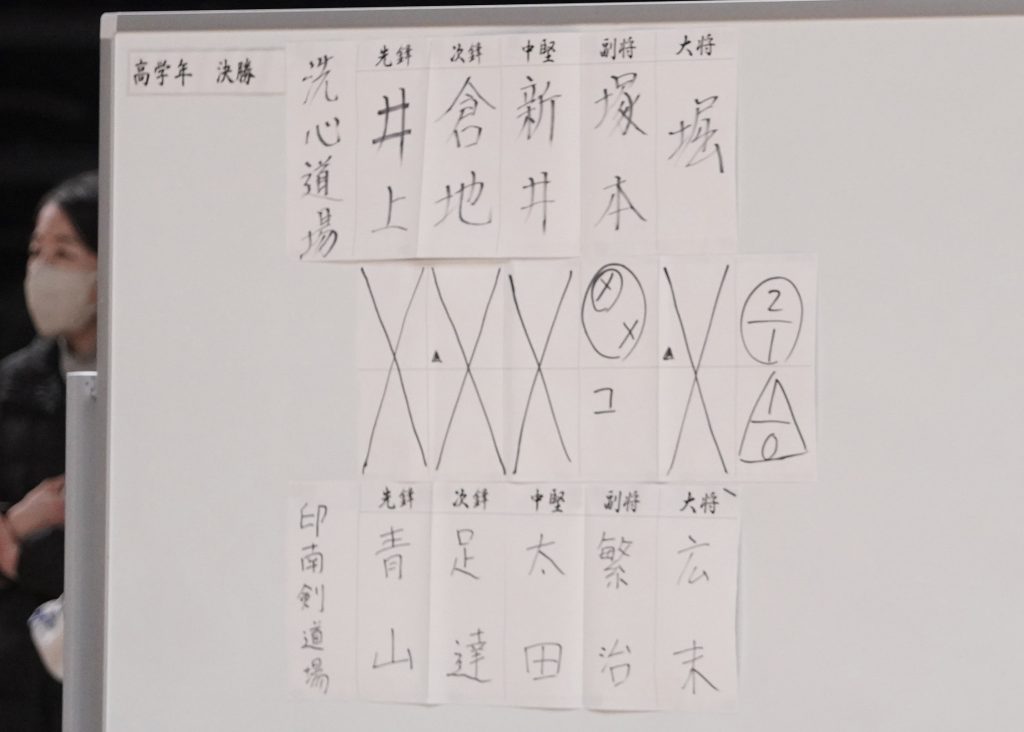 高学年 決勝
洗心道場
先鋒 次鋒 中堅 副将 大将
井上 倉地 新井 塚本 堀
▲ メ メ ▲ 2 1
コ 1 0
印南剣道場
先鋒 次鋒 中堅 副将 大将
青山 足達 太田 繁治 広末